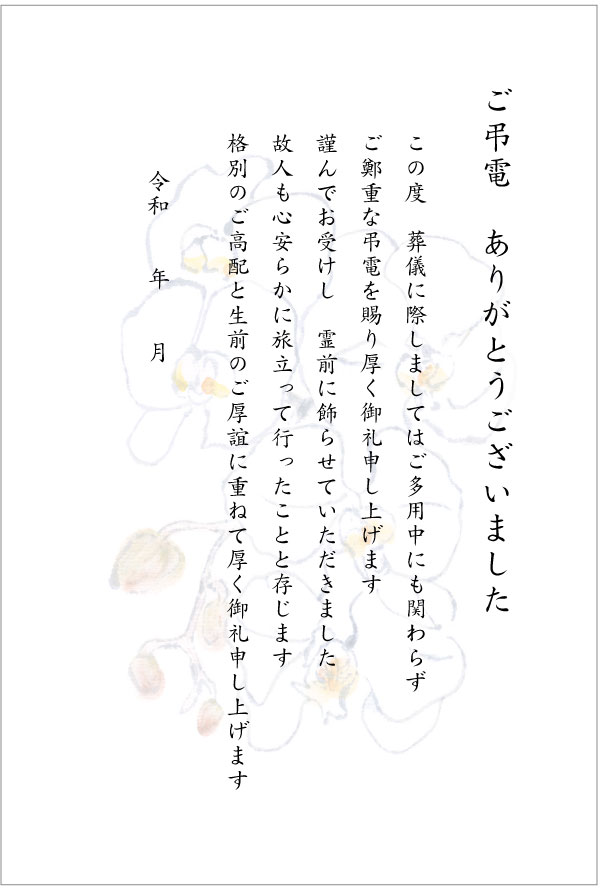 ご弔電　ありがとうございました
この度　葬儀に際しましてはご多用中にも関わらず
ご鄭重な弔電を賜り厚く御礼申し上げます
謹んでお受けし　霊前に飾らせていただきました
故人も心安らかに旅立って行ったことと存じます
格別のご高配と生前のご厚誼に重ねて厚く御礼申し上げます
令和　　年　　月